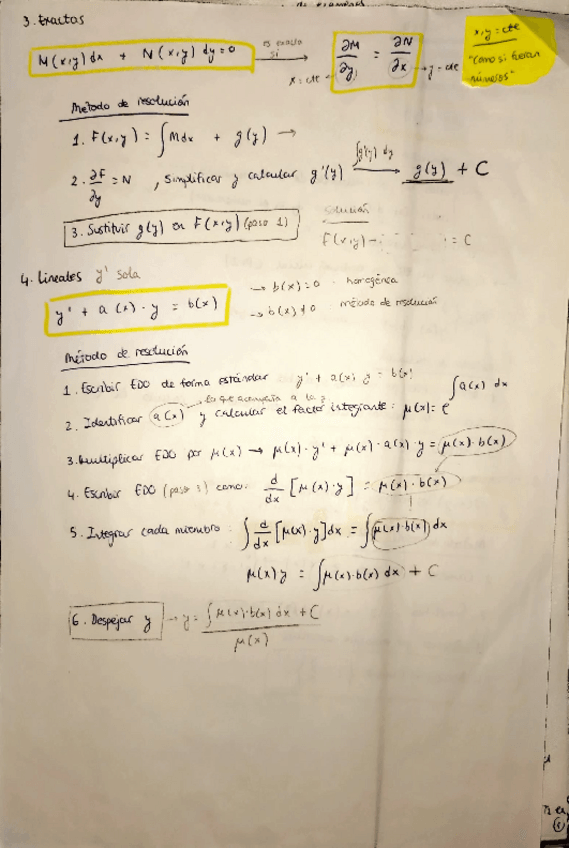 3. Exactas
M(x,y)dx + N(x,y)dy=0 es exacta si → ∂M/∂y = ∂N/∂x
x = cte → y = cte
x, y = cte
"Como si fueran números"
Método de resolución
1. F(x,y) = ∫Mdx + g(y) →
2. ∂F/∂y = N , simplificar y calcular g'(y) ∫g'(y) dy → g(y) + C
3. Sustituir g(y) en F(x,y) (paso 1)
Solución
F(x,y) = C
4. Lineales y' sola
y' + a(x)·y = b(x)
→ b(x)=0 · homogénea
→ b(x)≠0 · método de resolución
Método de resolución
1. Escribir EDO de forma estándar y' + a(x) y = b(x)
→ lo que acompaña a la y
2. Identificar a(x) y calcular el factor integrante: μ(x) = e^∫a(x) dx
3. Multiplicar EDO por μ(x) → μ(x)·y' + μ(x)·a(x)·y = μ(x)·b(x)
4. Escribir EDO (paso 3) como: d/dx [μ(x)·y] = μ(x)·b(x)
5. Integrar cada miembro: ∫ d/dx [μ(x)·y]dx = ∫μ(x)·b(x) dx
μ(x)y = ∫μ(x)·b(x) dx + C
6. Despejar y → y = (∫μ(x)·b(x) dx + C)/μ(x)